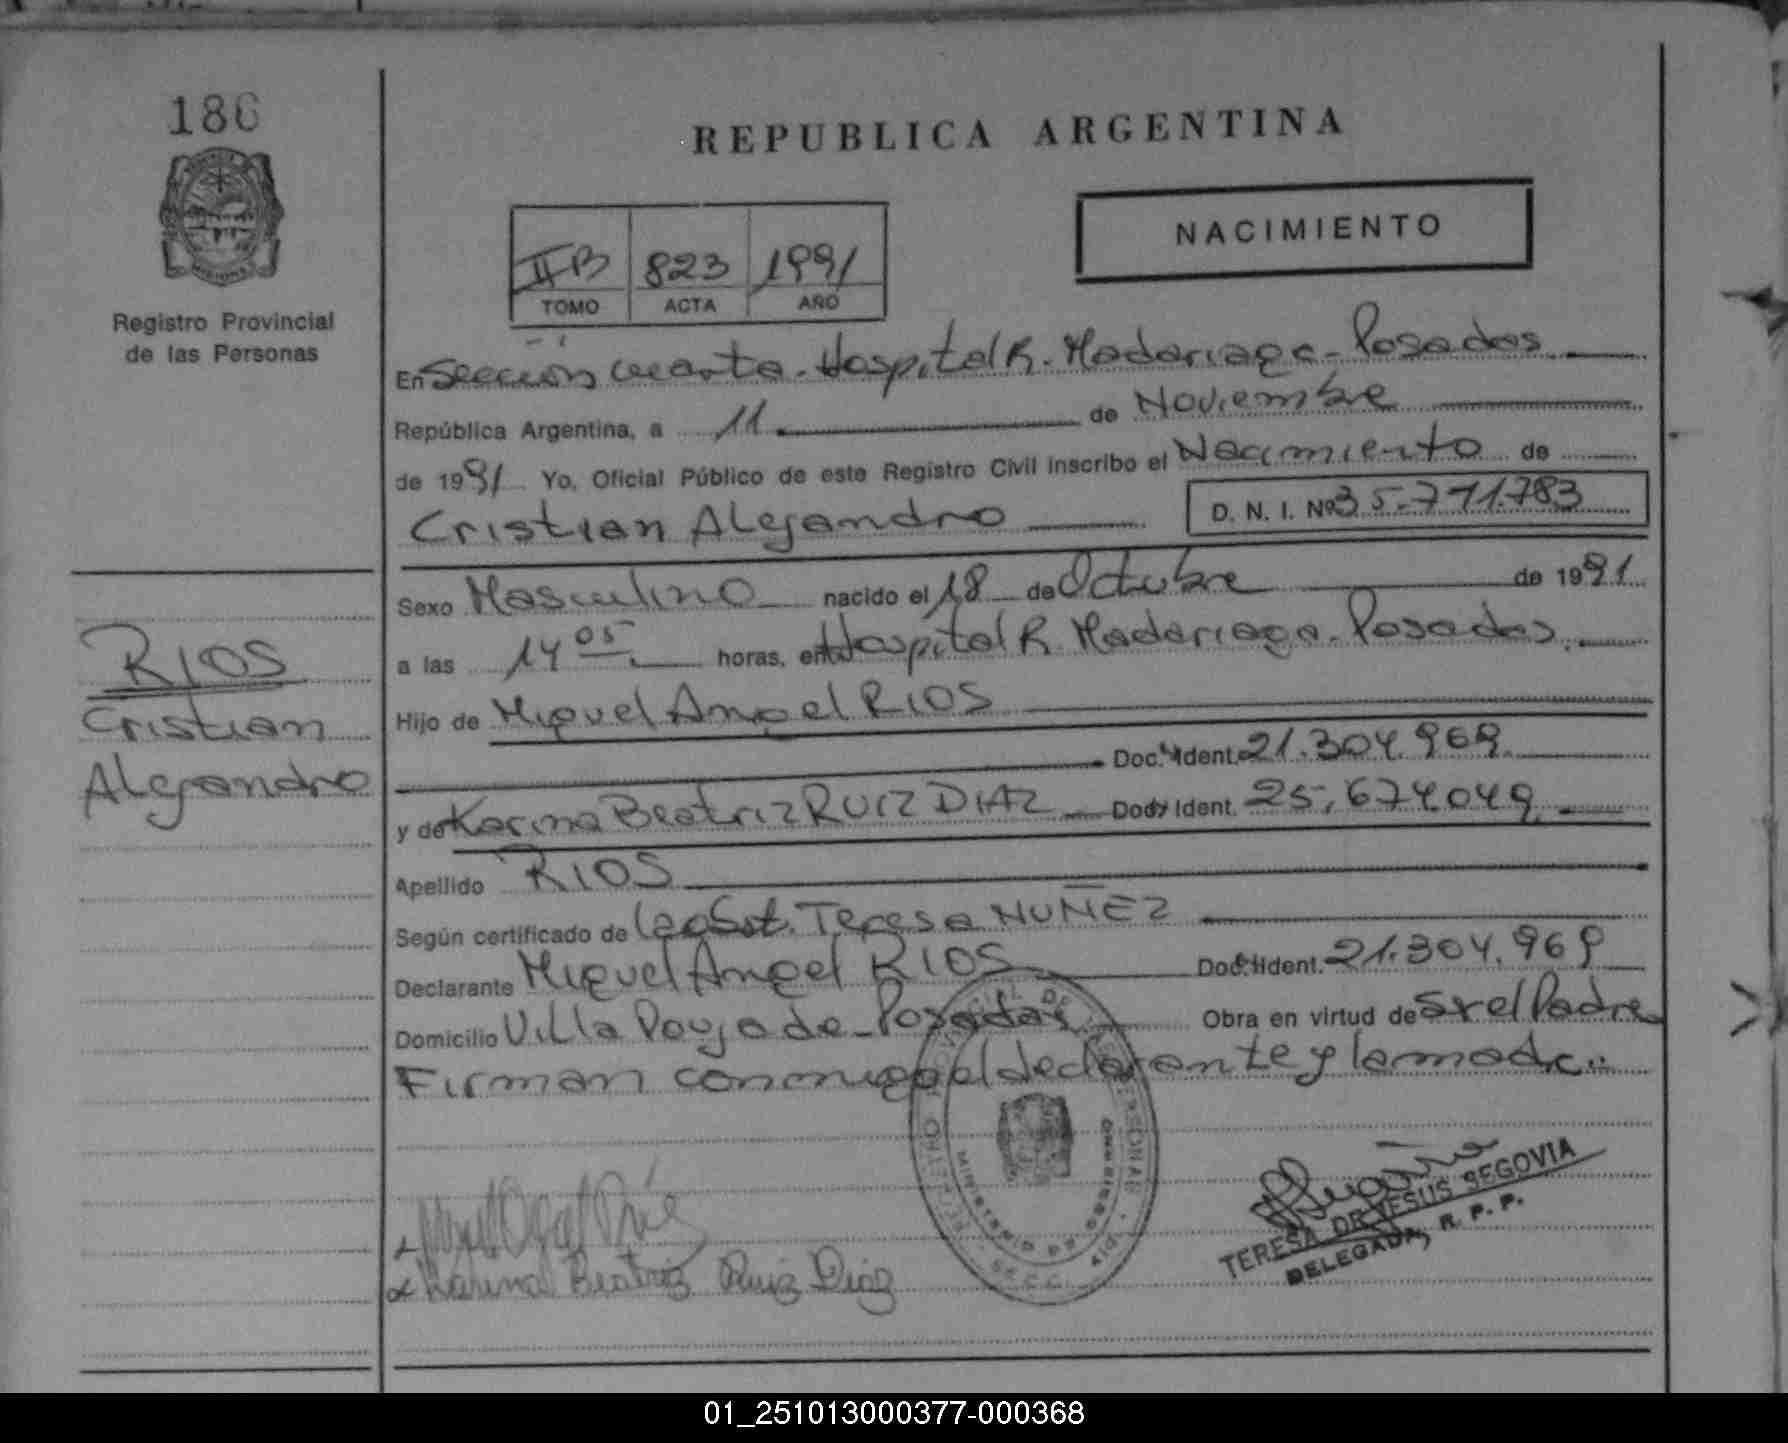 186
REPUBLICA ARGENTINA
NACIMIENTO
IIB 823 1991
TOMO ACTA AÑO
Registro Provincial
de las Personas
En Sección cuarta. Hospital R. Madariaga - Posadas
República Argentina, a 11 de Noviembre
de 1991 Yo, Oficial Público de este Registro Civil inscribo el Nacimiento de
Cristian Alejandro D. N. I. Nº 35.771.783
Sexo Masculino nacido el 18 de Octubre de 1991
a las 14 05 horas, en Hospital R. Madariaga - Posadas
Hijo de Miguel Angel RIOS
Doc. Ident. 21.304.969
y de Karina Beatriz RUIZ DIAZ Doc. Ident. 25.674.049
Apellido RIOS
Según certificado de la Obst. Teresa NUÑEZ
Declarante Miguel Angel RIOS Doc. Ident. 21.304.969
Domicilio Villa Poujade - Posadas Obra en virtud de ser el Padre
Firman conmigo el declarante y la madre
RIOS
Cristian
Alejandro
Miguel Angel Ríos
Karina Beatriz Ruiz Diaz
REGISTRO PROVINCIAL DE LAS PERSONAS
MINISTERIO DE GOBIERNO
TERESA DE JESUS SEGOVIA
DELEGADA, R. P. P.
01_251013000377-000368